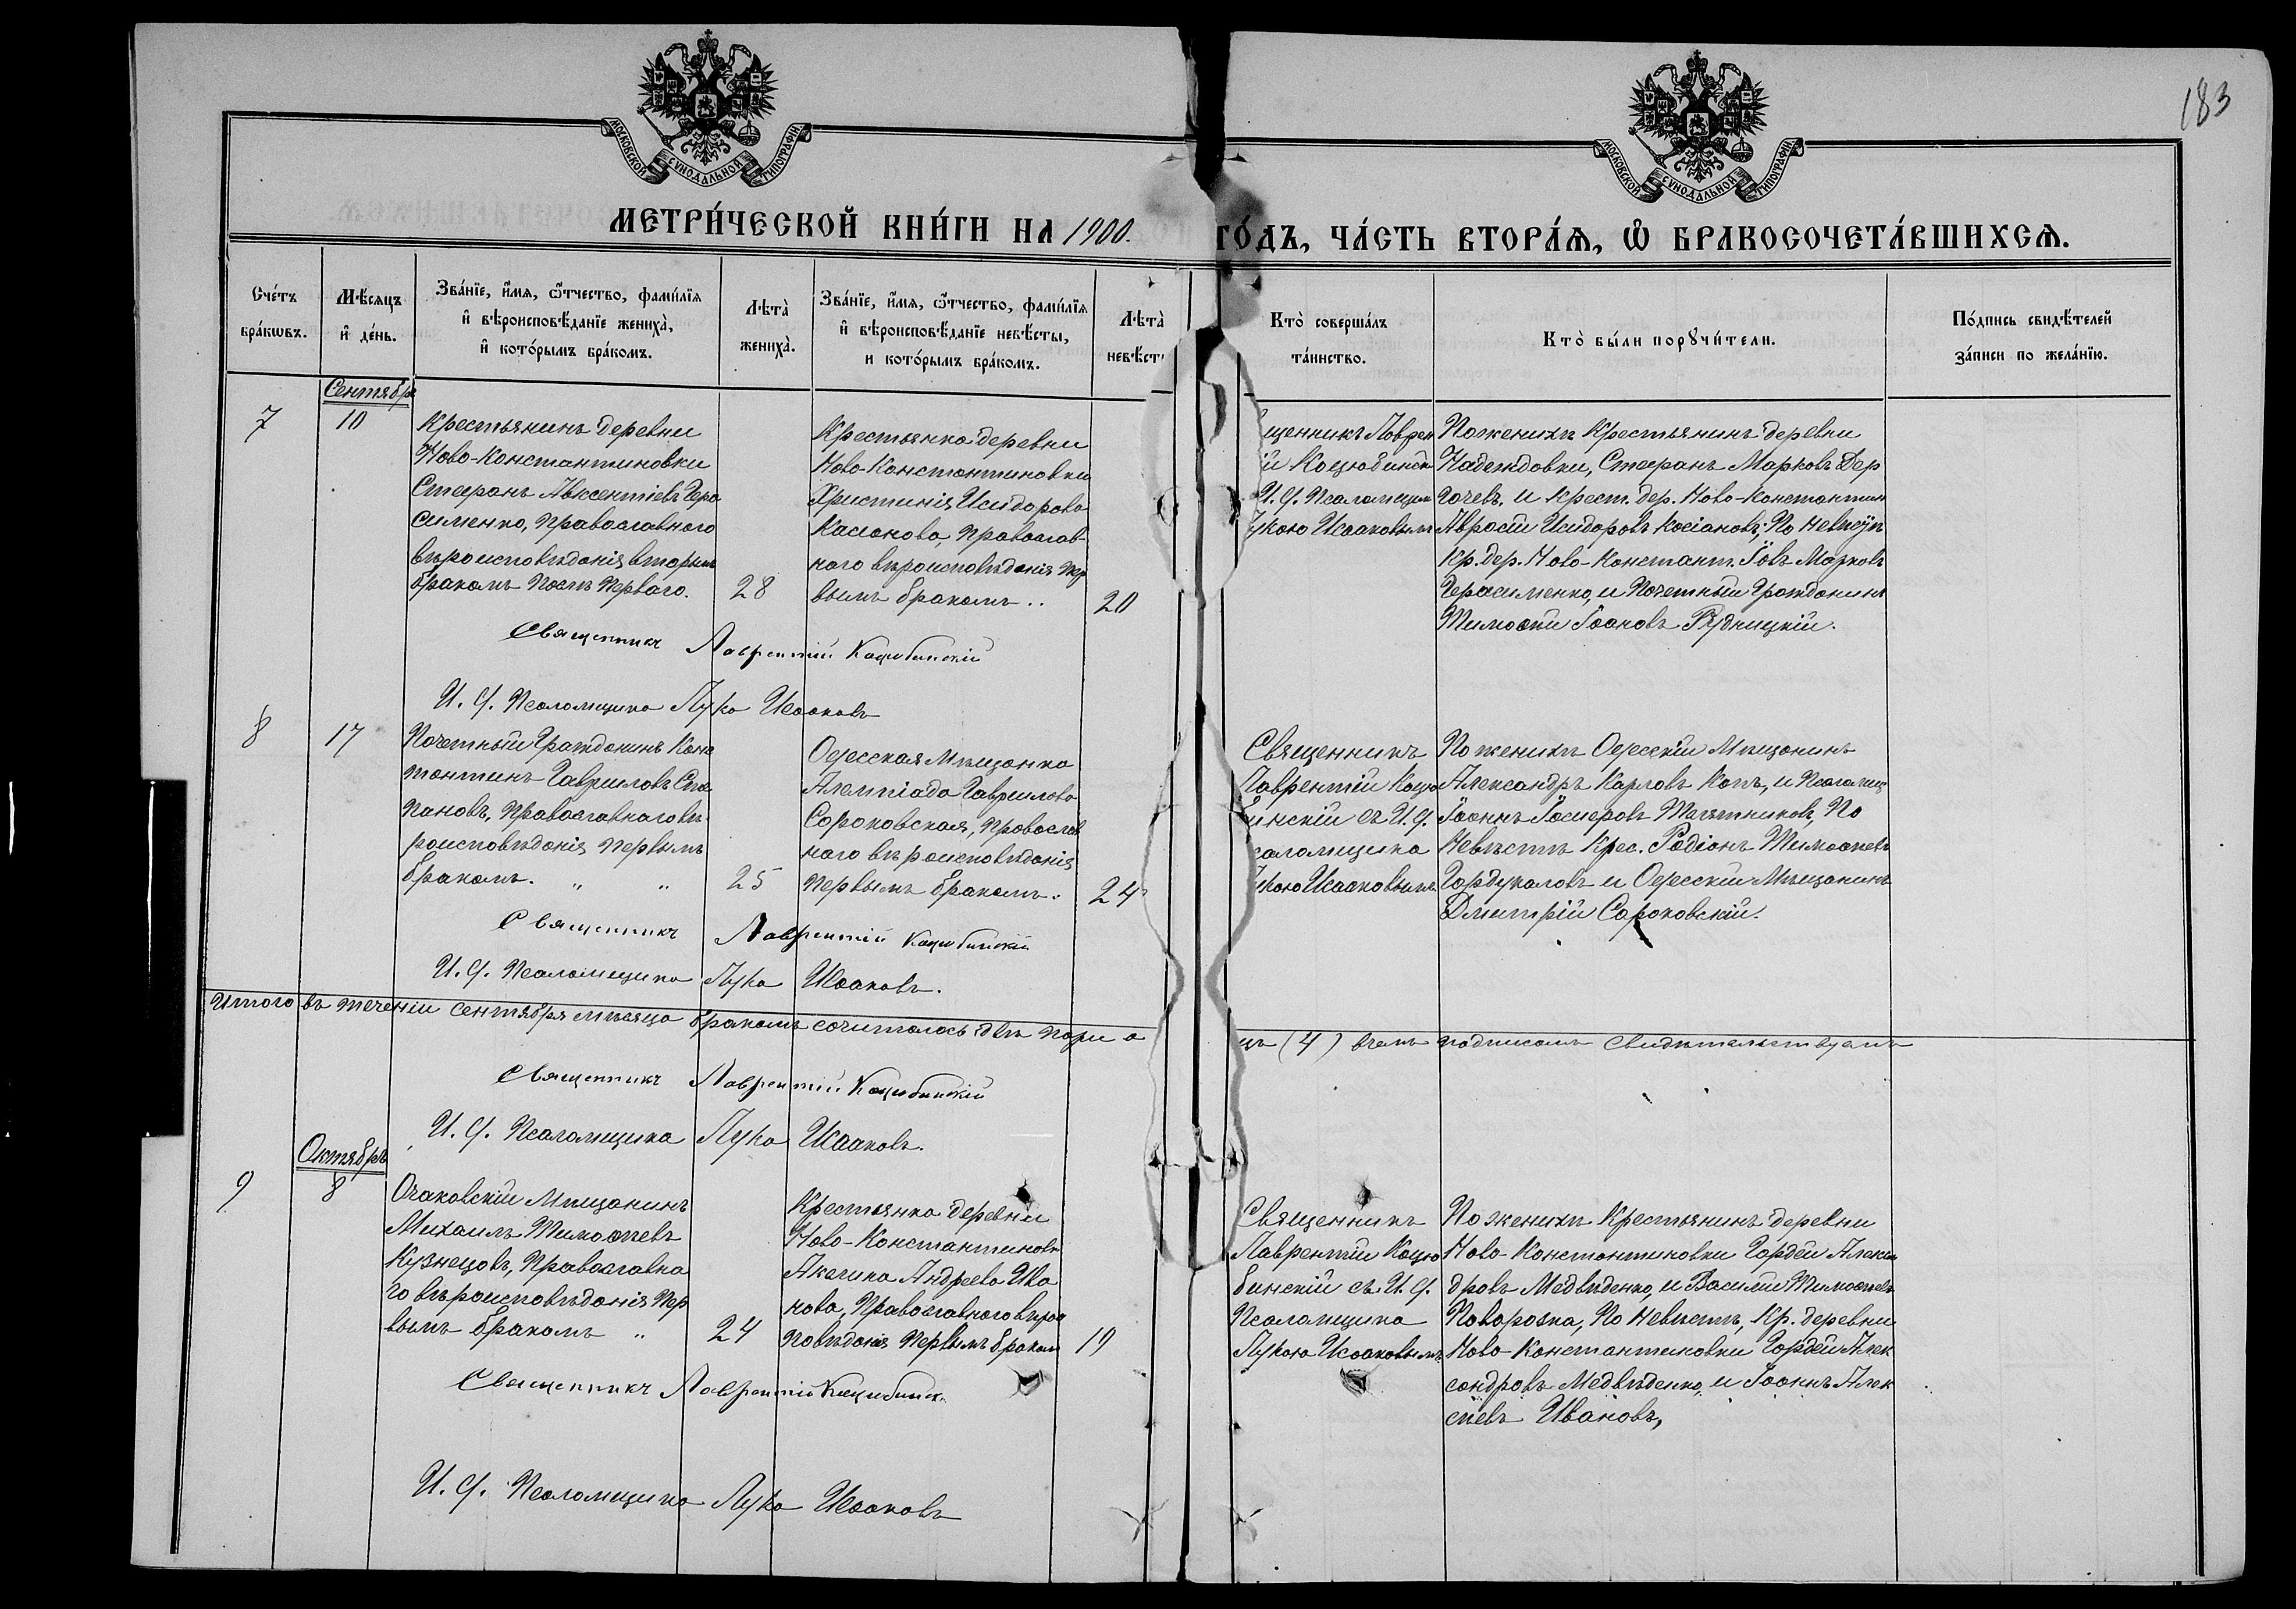 183
МОСКОВСКОЙ СѴНОДАЛЬНОЙ ТИПОГРАФІИ
МОСКОВСКОЙ СѴНОДАЛЬНОЙ ТИПОГРАФІИ
МЕТРИ́ЧЕСКОЙ КНИ́ГИ НА 1900. ГО́ДЪ, ЧА́СТЬ ВТОРА́Ѧ, Ѽ БРАКОСОЧЕТА́ВШИХСѦ.
Сче́тъ
бра́кѡвъ.
Мѣ́сяцъ
и҆ де́нь.
Зва́нїе, и҆́мѧ, ѻ҆́тчество, фамилі́ѧ
и҆ вѣроисповѣ́данїе жениха̀,
и҆ кото́рымъ бра́комъ.
Лѣта̀
жениха̀.
Зва́нїе, и҆́мѧ, ѻ҆́тчество, фамилі́ѧ
и҆ вѣроисповѣ́данїе невѣ́сты,
и кото́рымъ бра́комъ.
Лѣта̀
невѣст
Кто̀ соверша́лъ
та́инство.
Кто̀ бы́ли порꙋчи́тели.
По́дпись свидѣ́телей
за́писи по жела́нїю.
Сентябрь
7
10
Крестьянинъ деревни
Ново-Константиновки
Стефанъ Авксентіевъ Гера
сименко, Православнаго
вѣроисповѣданія вторымъ
бракомъ послѣ Перваго.
28
Крестьянка деревни
Ново-Константиновки
Христинія Исидорова
Касіанова, Православ-
наго вѣроисповѣданія Пер
вымъ бракомъ..
20
щенникъ Лаврен
ій Коцюбинскі
И. Ф. Псаломщик
укою Исааковымъ
По женихѣ Крестьянинъ деревни
Надеждовки, Стефанъ Марковъ Дер
гачевъ, и Крест. дер. Ново-Константин
Исидоровъ Касіановъ, По Невѣстѣ
Кр. дер. Ново-Констант. Іовъ Марковъ
Герасименко, и Почетный Гражданинъ
Тимофѣй Іоановъ Рудницкій.
Священникъ Лаврентій Коцюбинскій
И. Ф. Псаломщика Лука Исааковъ
8
17
Почетный Гражданинъ Конс
тантинъ Гавриловъ Сте
пановъ, Православнаго вѣ
роисповѣданія Первымъ
бракомъ. „ „
25
Одесская Мѣщанка
Гаврилова
Сороковская, Православ
наго вѣроисповѣданія
Первымъ бракомъ.
24
Священникъ
Лаврентій Коцю
бинскій съ И. Ф.
саломщика
укою Исааковымъ
По женихѣ Одесскій Мѣщанинъ
Александръ Карловъ и Псаломщ
Іоаннъ По
Невѣстѣ Крес. Родіонъ Тимофѣевъ
и Одесскій Мѣщанинъ
Дмитрій Сороковскій.
Священникъ Лаврентій Коцюбинскій
И. Ф. Псаломщика Лука Исааковъ.
Итого въ теченіи сентября мѣсяца бракомъ сочиталось двѣ пари а
цъ (4) вчемъ подписомъ свидѣтельствуемъ
Священникъ Лаврентій Коцюбинскій
И. Ф. Псаломщика Лука Исааковъ.
Октябрь
9
8
Очаковскій Мѣщанинъ
Михаилъ Тимофѣевъ
Кузнецовъ, Православна
го вѣроисповѣданія Пер
вымъ бракомъ „
24
Крестьянка деревни
Ново-Константиновк
Акилина Андреева Ива
нова, Православнаго вѣрои
повѣданія Первымъ браком
19
Священникъ
Лаврентій Коцю
бинскій съ И. Ф.
Псаломщика
Лукою Исааковымъ
По женихѣ Крестьянинъ деревни
Ново-Константиновки Гордѣй Алексан
дровъ Медвѣденко, и Василій Тимофѣевъ
По Невѣстѣ, Кр. деревни
Ново-Константиновки Гордѣй Алек
сандровъ Медвѣденко, и Іоаннъ Алек
сѣевъ Ивановъ,
Священникъ Лаврентій Коцюбинск
И. Ф. Псаломщика Лука Исааковъ